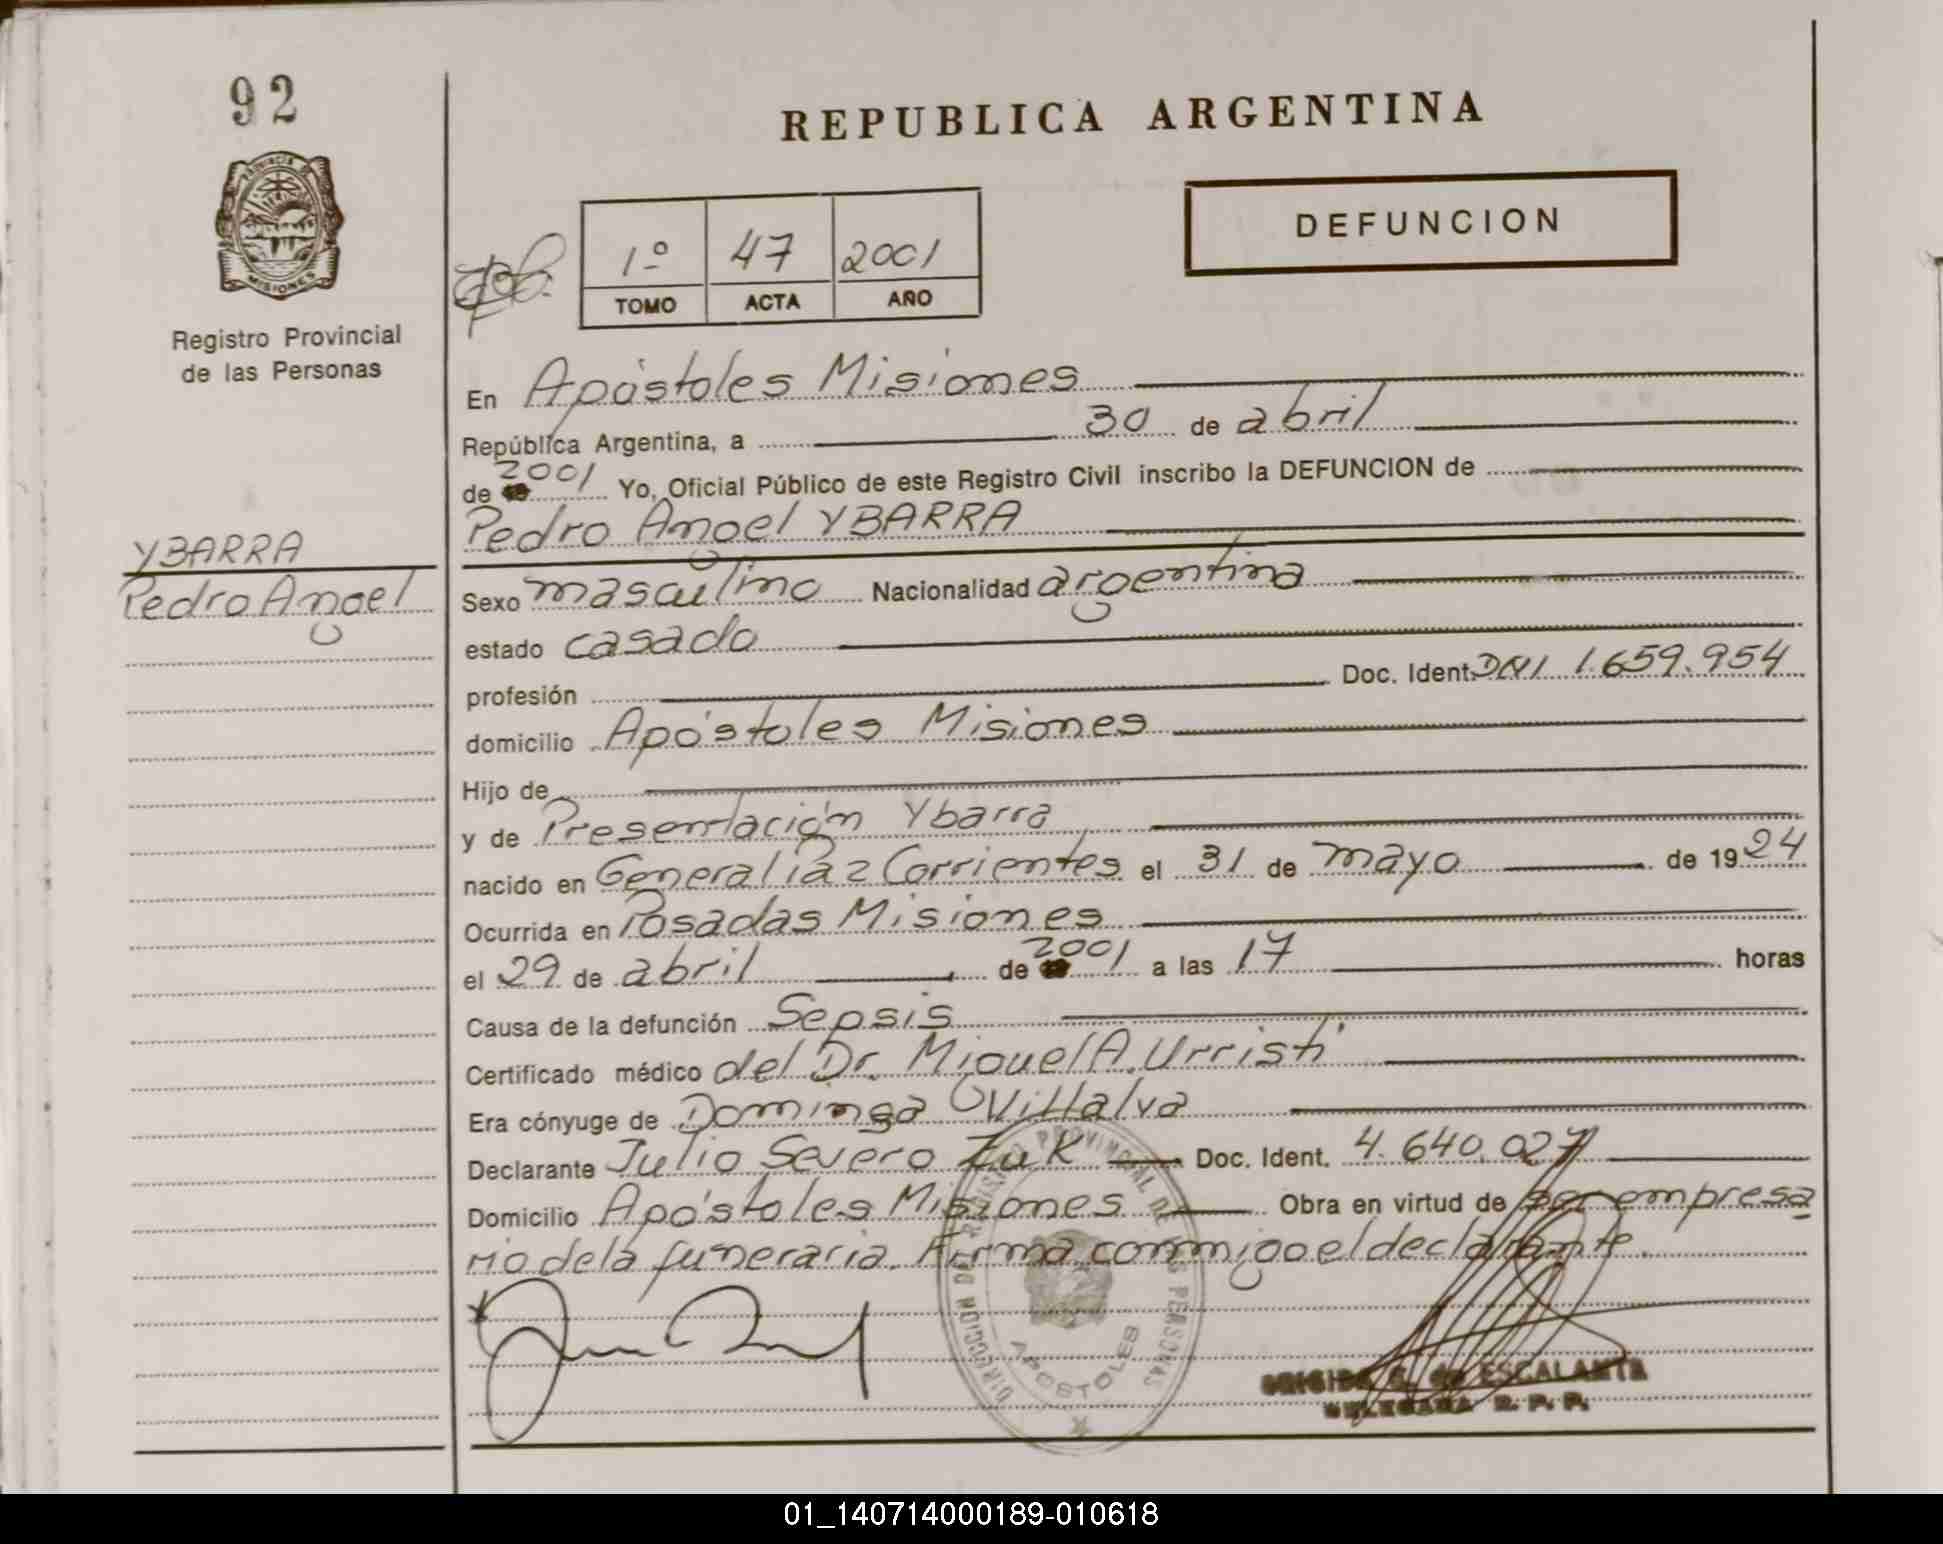 92
PROVINCIA DE
MISIONES
Registro Provincial
de las Personas
YBARRA
Pedro Angel
REPUBLICA ARGENTINA
DEFUNCION
1º 47 2001
TOMO ACTA AÑO
En Apóstoles Misiones
República Argentina, a 30 de abril
de 2001 Yo, Oficial Público de este Registro Civil inscribo la DEFUNCION de
Pedro Angel YBARRA
Sexo masculino Nacionalidad argentina
estado casado
profesión Doc. Ident. DNI 1.659.954
domicilio Apóstoles Misiones
Hijo de
y de Presentación Ybarra
nacido en General Paz Corrientes el 31 de mayo de 1924
Ocurrida en Posadas Misiones
el 29 de abril de 2001 a las 17 horas
Causa de la defunción Sepsis
Certificado médico del Dr. Miguel A. Urristi
Era cónyuge de Dominga Villalva
Declarante Julio Severo Zuk Doc. Ident. 4.640.027
Domicilio Apóstoles Misiones Obra en virtud de ser empresa
rio de la funeraria. Firma conmigo el declarante.
DIRECCION DEL REGISTRO PROVINCIAL DE LAS PERSONAS
APOSTOLES
de ESCALANTE
DELEGADA R. P. P.
01_140714000189-010618